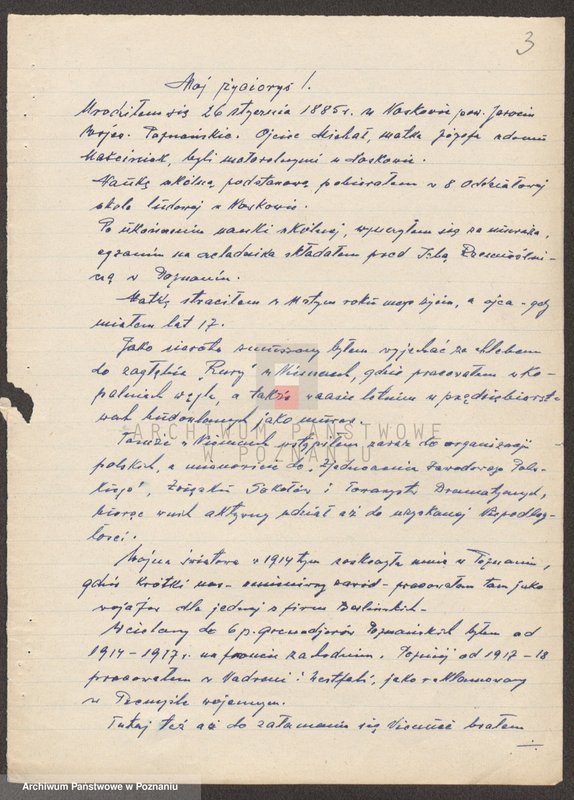 3
Moj życiorys!.
Urodziłem się 26 stycznia 1885 r. w Noskowie pow. Jarocin
Wojew. Poznańskie. Ojciec Michał, matka Józefa z domu
Maściniak, byli małorolnymi w Noskowie.
Naukę szkolną podstawową pobierałem w 8 oddziałowej
szkole ludowej w Noskowie.
Po ukończeniu nauki szkolnej, wyuczyłem się za murarza,
egzamin na czeladnika składałem przed Izbą Rzemieślni-
czą w Poznaniu.
Matkę straciłem w roku mego życia, a ojca - gdy
miałem lat 17.
Jako sierota zmuszony byłem wyjechać za chlebem
do zagłębia "Rury" w Niemczech, gdzie pracowałem w ko-
palniach węgla, a także w czasie letnim w przedsiębiorst-
wach budowlanych jako murarz.
Tamże w Niemczech wstąpiłem zaraz do organizacji
polskich, a mianowicie do "Zjednoczenia Zawodowego Pols-
kiego", Związku Sokołów i Towarzystw Dramatycznych,
biorąc w nich aktywny udział aż do uzyskanej Niepodleg-
łości.
Wojna światowa w 1914 tym zaskoczyła mnie w Poznaniu,
gdzie krótki czas - zmieniwszy zawód - pracowałem tam jako
wojażer dla jednej z firm Berlińskich -
Wcielony do 6 p. grenadjerów Poznańskich byłem od
1914 - 1917 r. na froncie zachodnim. Później od 1917 - 18
pracowałem w Nadrenii i Westfalii, jako reklamowany
w Przemyśle wojennym.
Tutaj też aż do załamania się Niemiec brałem
ARCHIWUM PAŃSTWOWE
W POZNANIU
Archiwum Państwowe w Poznaniu